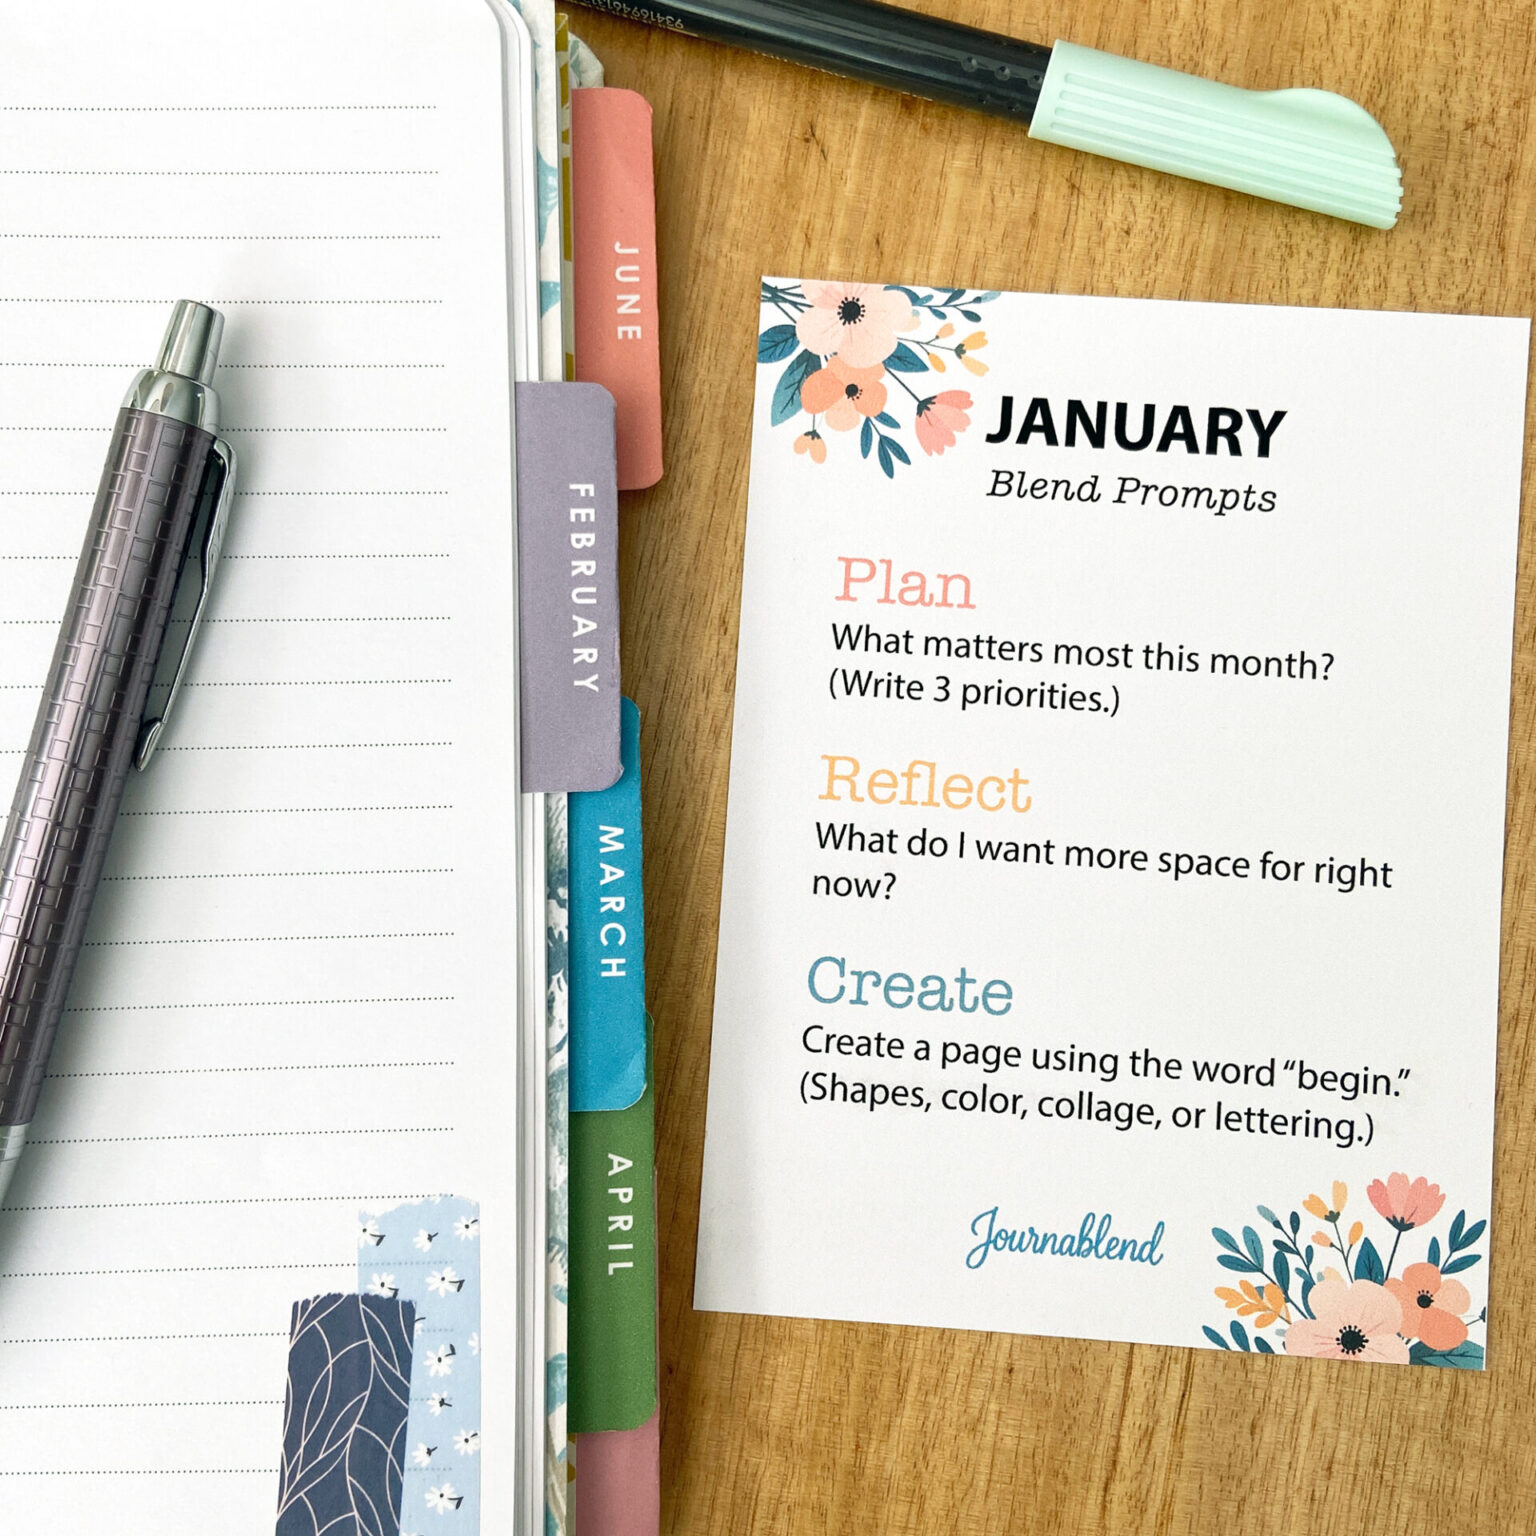 JUNE
FEBRUARY
MARCH
APRIL
JANUARY
Blend Prompts
Plan
What matters most this month?
(Write 3 priorities.)
Reflect
What do I want more space for right
now?
Create
Create a page using the word “begin.”
(Shapes, color, collage, or lettering.)
Journablend